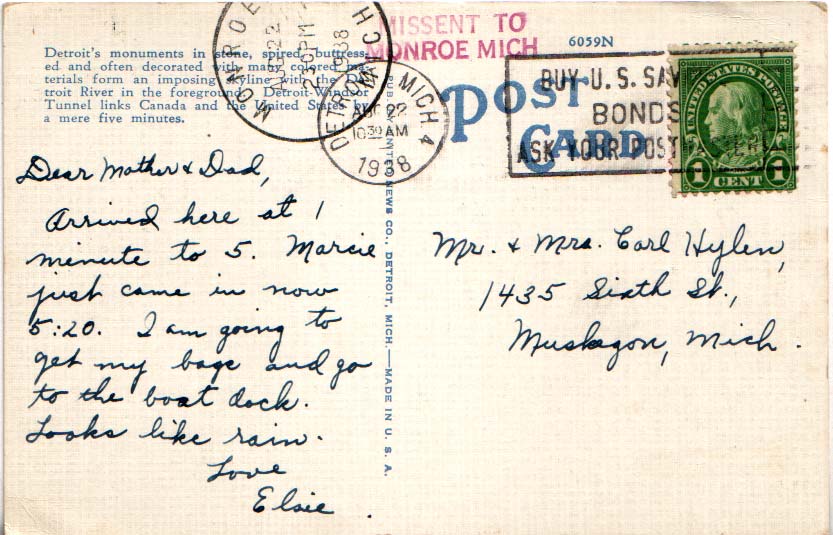 MISSENT TO
MONROE MICH
6059N
Detroit's monuments in stone, spired, buttress-
ed and often decorated with many colored ma-
terials form an imposing skyline with the De-
troit River in the foreground. Detroit-Windsor
Tunnel links Canada and the United States by
a mere five minutes.
MONROE MICH
AUG 22
30 PM
1938
DETROIT MICH 4
AUG 22
10 30 AM
1938
POST
CARD
BUY U.S. SAV
BONDS
ASK YOUR POSTMASTER
UNITED STATES POSTAGE
1 CENT 1
NEWS CO., DETROIT, MICH.—MADE IN U. S. A.
Dear Mother & Dad,
Arrived here at 1
minute to 5. Marcie
just came in now
5:20. I am going to
get my bags and go
to the boat dock.
Looks like rain.
Love
Elsie.
Mr. & Mrs. Carl Hylen,
1435 Sixth St.,
Muskegon, Mich.